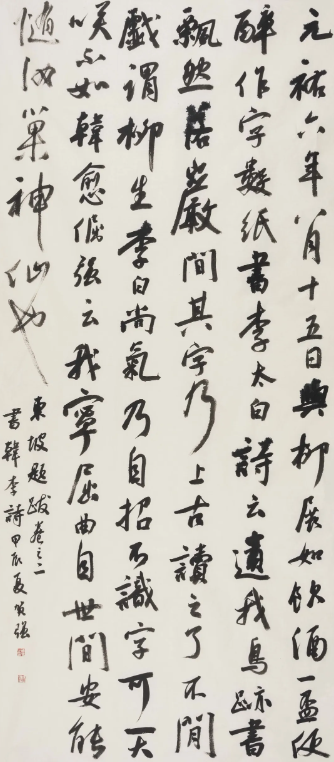 元祐六年八月十五日與柳展如飲酒一盃便
醉作字數紙書李太白詩云遺我鳥跡書
飄然落巖間其字乃上古讀之了不閒
戲謂柳生李白尚氣乃自招不識字可一大
咲不如韓愈倔强云我寧屈曲自世間安能
隨汝巢神仙也
東坡題跋卷之二
書韓李詩甲辰夏强